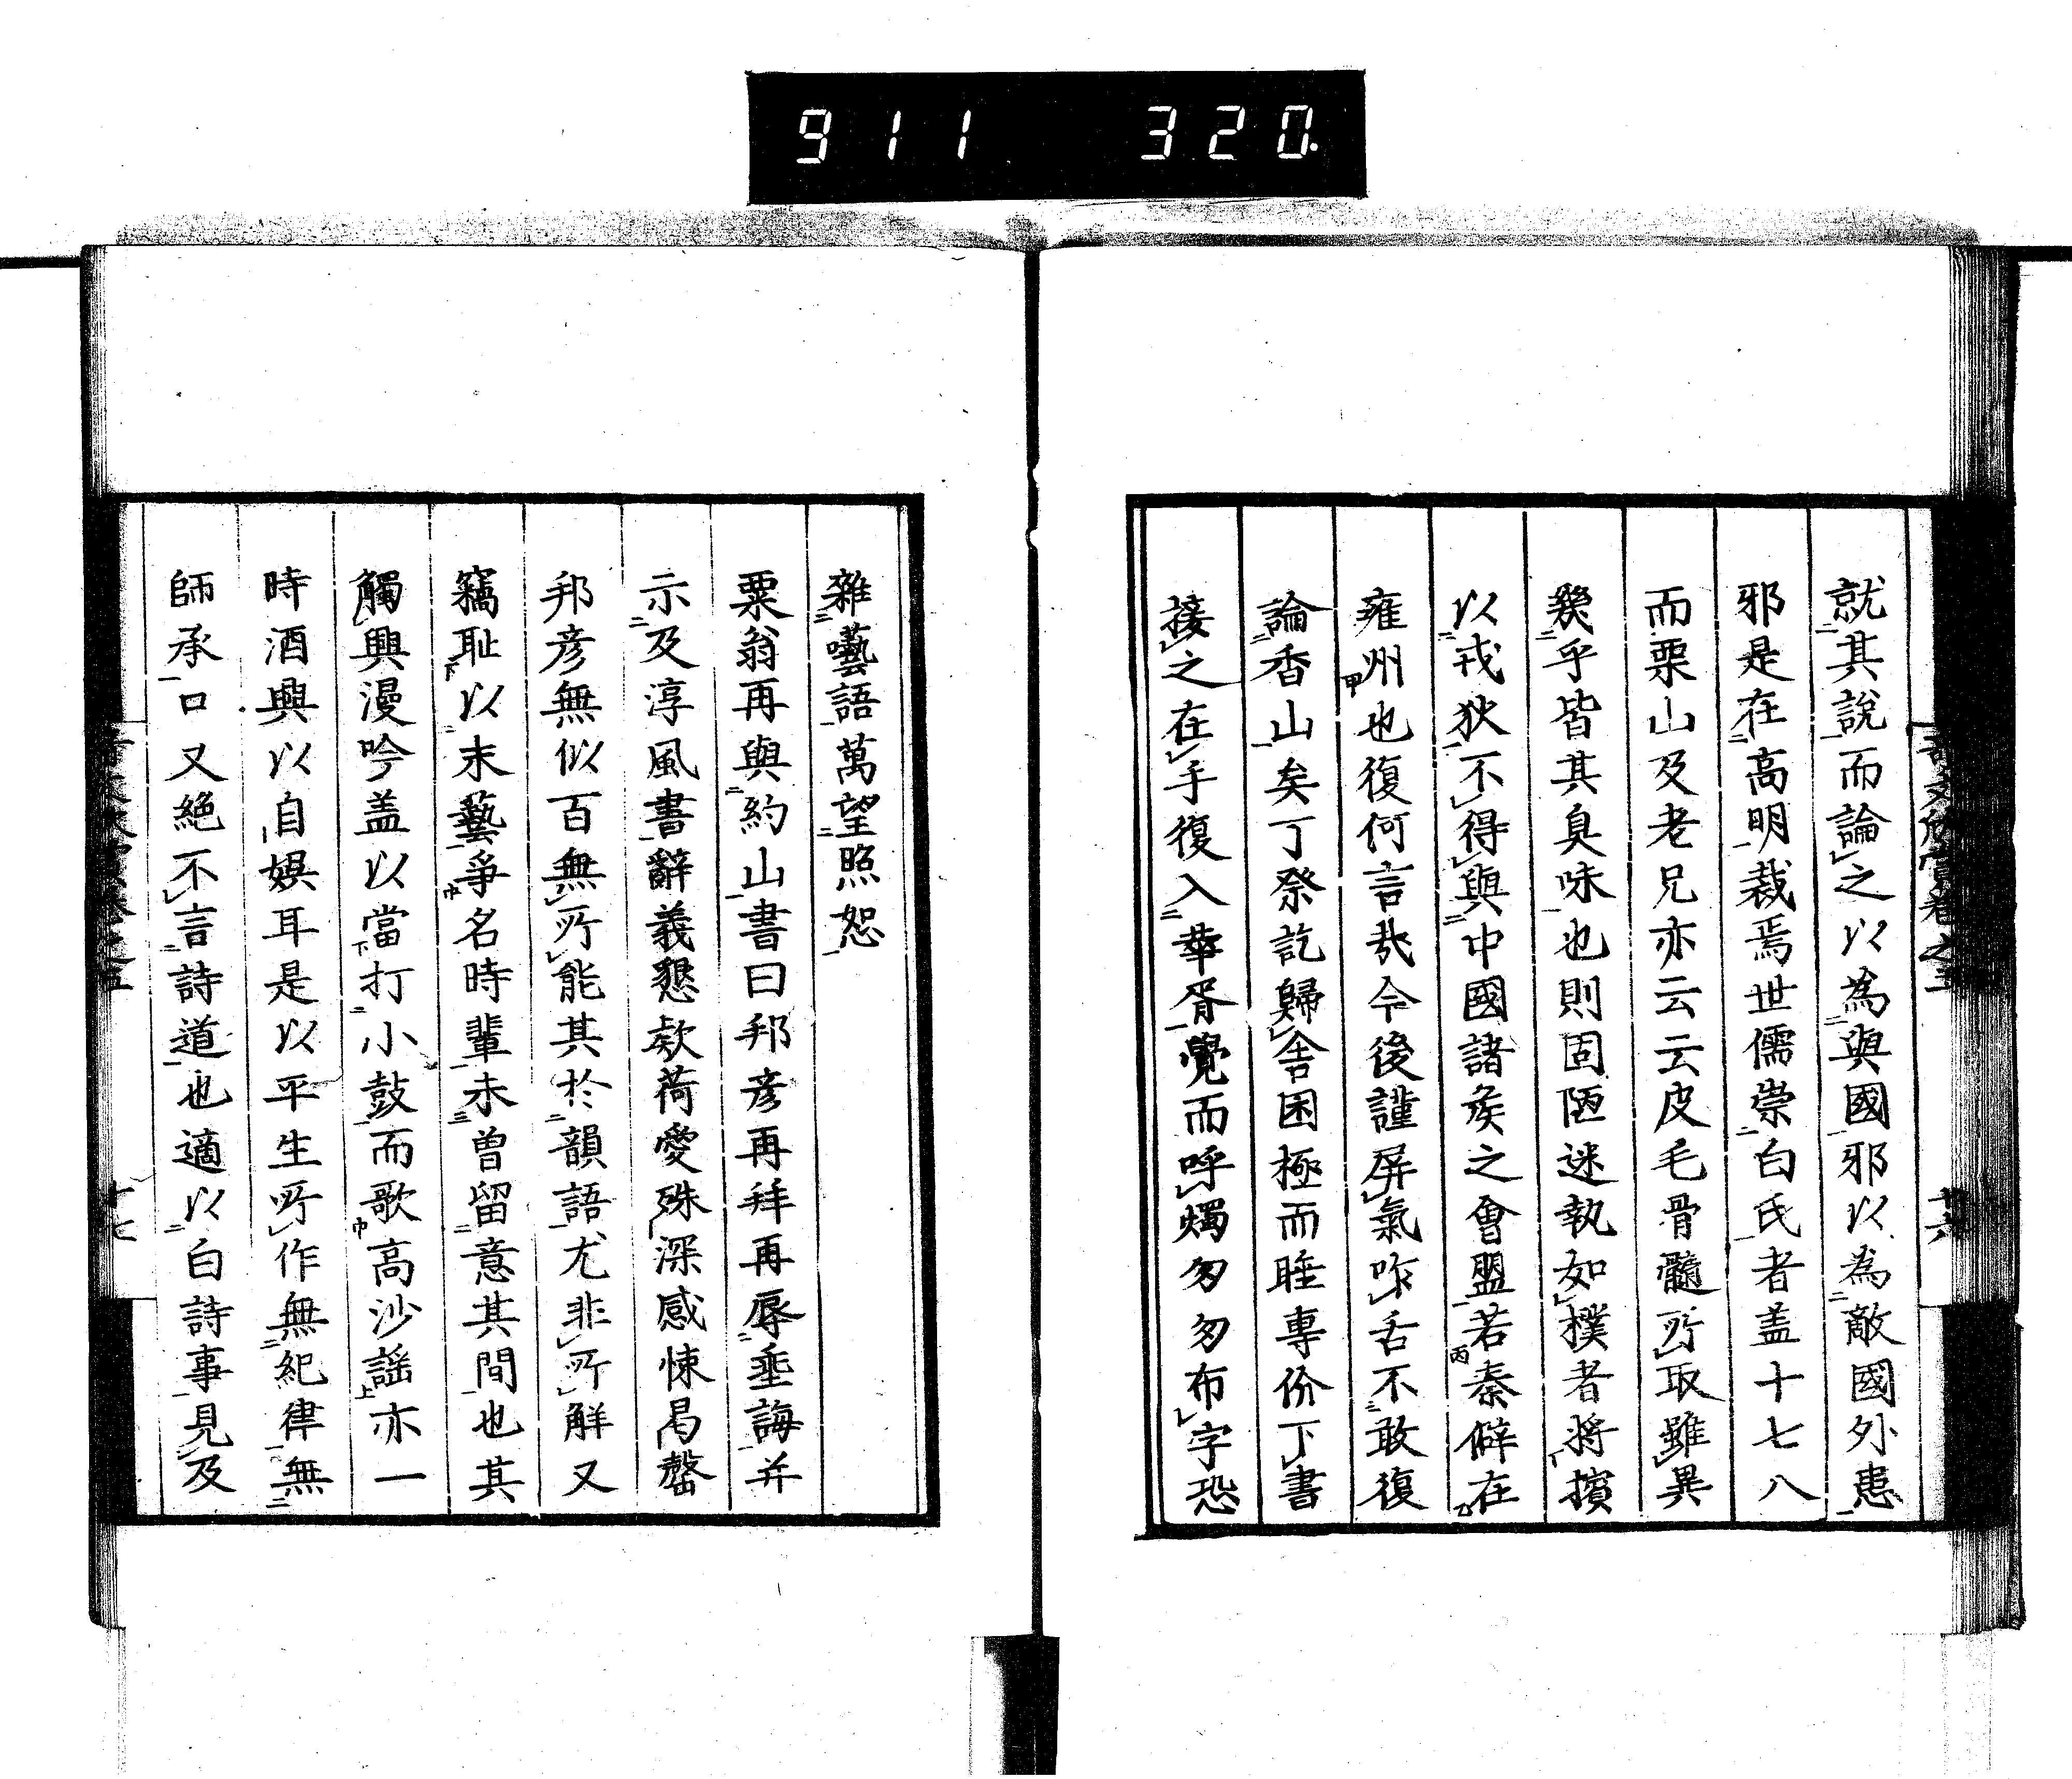 911 320
就其說而論之以為與國邪以為敵國外患
邪是在高明裁焉世儒崇白氏者盖十七八
而栗山及老兄亦云云皮毛骨髓所取雖異
乎皆其臭味也則固陋迷執如樸者将擯
以戎狄不得與中國諸矦之會盟若秦僻在
雍州也復何言哉今後謹屏氣咋舌不敢復
論香山矣丁祭訖歸舍困極而睡專价下書
接之在手復入華胥覺而呼燭匆匆布字恐
雜囈語萬望照恕
栗翁再與約山書曰邦彦再拜再辱垂誨并
示及淳風書辭義懇欵荷愛殊深感悚曷罄
邦彦無似百無所能其於韻語尤非所解又
竊耻以末藝爭名時輩未曽留意其間也其
觸興漫吟盖以當打小鼓而歌高沙謡亦一
時酒興以自娯耳是以平生所作無紀律無
師承口又絶不言詩道也適以白詩事見及